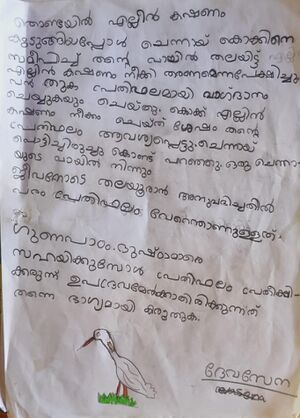 തൊണ്ടയിൽ എല്ലിൻ കഷണം
കുടുങ്ങിയപ്പോൾ ചെന്നായ് കൊക്കിനെ
സമീപിച്ച് തന്റെ വായിൽ തലയിട്ട്
എല്ലിൻ കഷണം നീക്കി തരണമെന്നപേക്ഷിച്ചു
വൻ തുക പ്രതിഫലമായി വാഗ്ദാനം
ചെയ്യുകയും ചെയ്തു. കൊക്ക് എല്ലിൻ
കഷണം നീക്കം ചെയ്ത് ശേഷം തന്റെ
പ്രതിഫലം ആവശ്യപ്പെട്ടു. ചെന്നായ്
പൊട്ടിച്ചിരിച്ചു കൊണ്ട് പറഞ്ഞു. ഒരു ചെന്നാ
യുടെ വായിൽ നിന്നും
ജീവനോടെ തലയൂരാൻ അനുവദിച്ചതിൽ
പരം പ്രതിഫലം വേറെന്താണുള്ളത്.
ഗുണപാഠം. ദുഷ്ടന്മാരെ
സഹായിക്കുമ്പോൾ പ്രതിഫലം പ്രതീക്ഷി-
ക്കരുത് ഉപദ്രവമേൽക്കാതിരിക്കുന്നത്
തന്നെ ഭാഗ്യമായി കരുതുക.
ദേവസേന